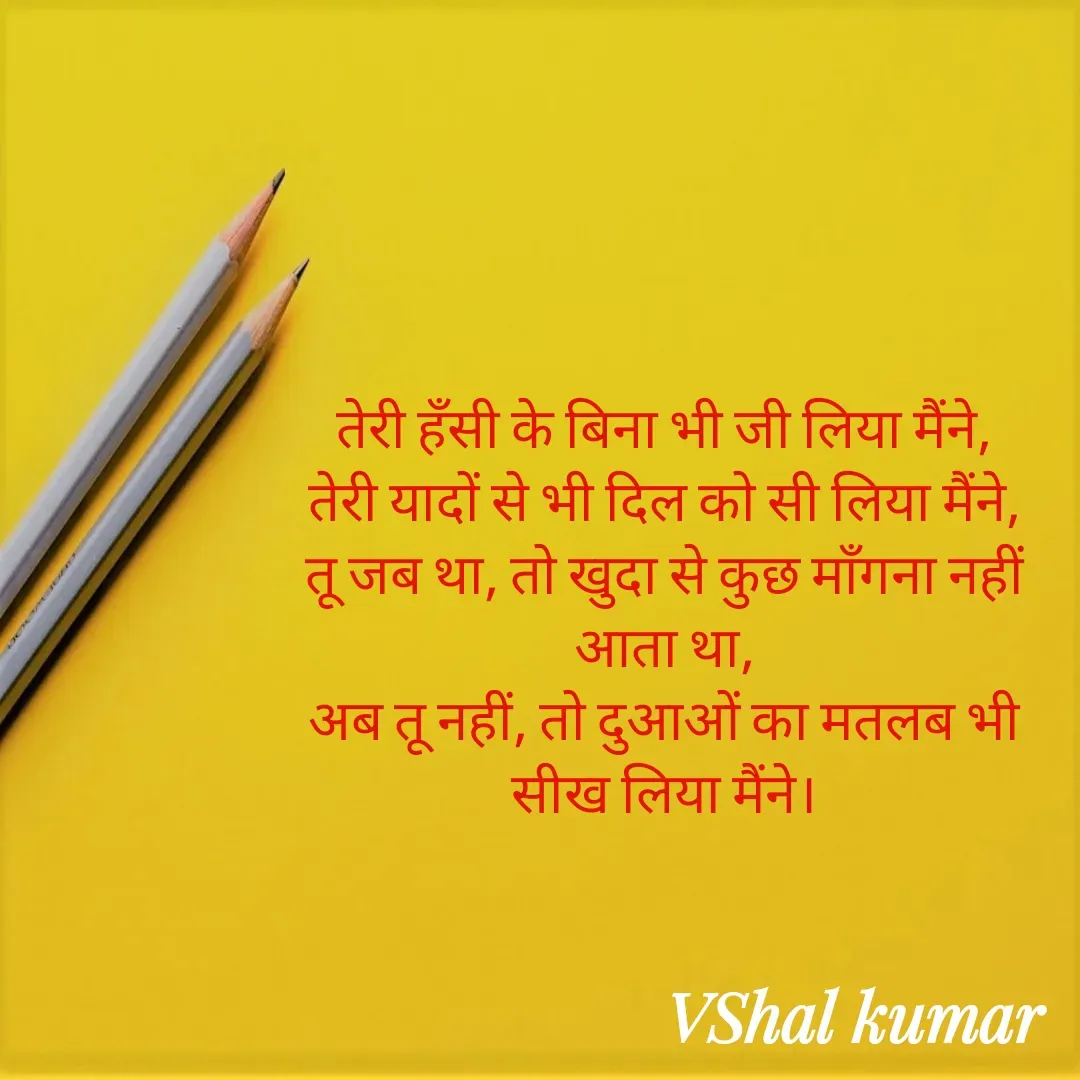 तेरी हँसी के बिना भी जी लिया मैंने,
तेरी यादों से भी दिल को सी लिया मैंने,
तू जब था, तो खुदा से कुछ माँगना नहीं
आता था,
अब तू नहीं, तो दुआओं का मतलब भी
सीख लिया मैंने।
VShal kumar